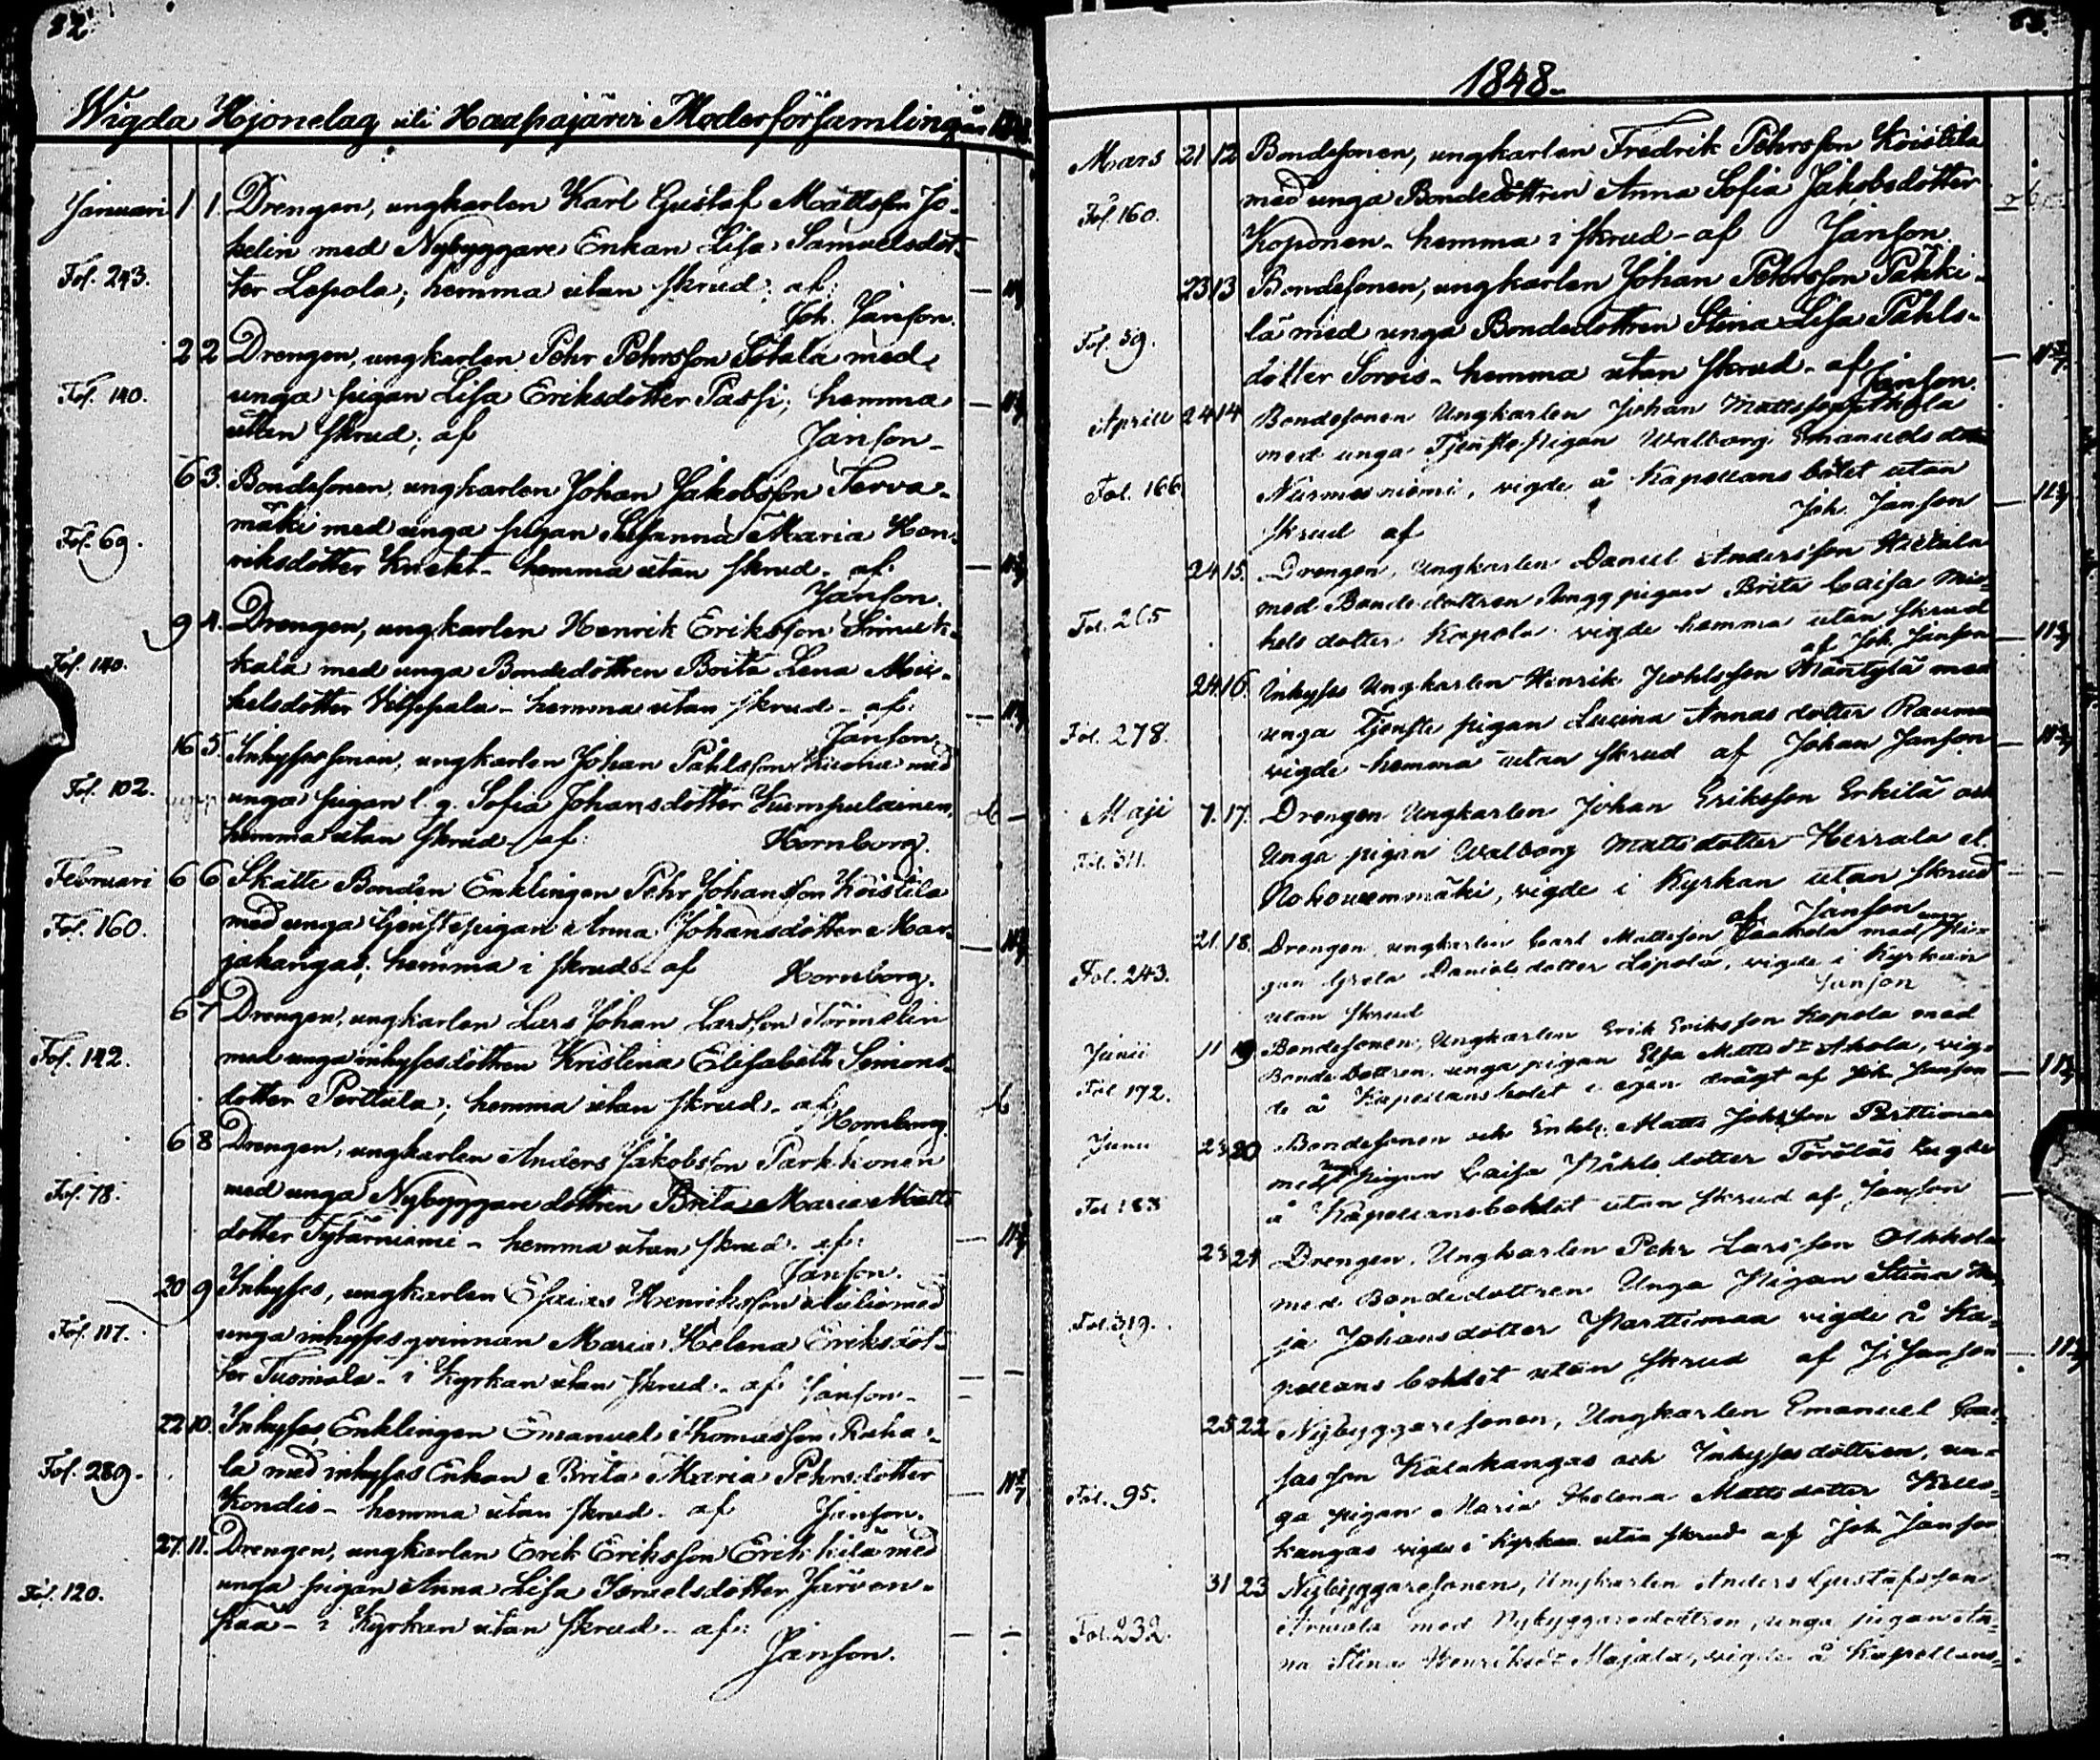 82.
Wigda Hjonelag uti Haapajärvi Moderförsamling år
Januari 1 1. Drengen, ungkarlen Karl Gustaf Mattsson Jo-
kelin med Nybyggare Enkan Lisa Samuelsdot-
Fol. 243. ter Lepola; hemma utan skrud. af:
Joh. Janson.
2 2 Drengen, ungkarlen Pehr Pehrsson Sotala med
Fol. 140. unga pigan Lisa Eriksdotter Passi; hemma
utan skrud; af Janson-
6 3. Bondesonen, ungkarlen Johan Jakobsson Terva-
mäki med unga pigan Susanna Maria Hen-
Fol. 69. riksdotter Knekt- hemma utan skrud. af.
Janson.
9 4. Drengen, ungkarlen Henrik Eriksson
Fol. 140. kala med unga Bondedottren Brita Lena Mic-
helsdotter - hemma utan skrud - af:
Janson.
16 5. Inhysessonen, ungkarlen Johan Påhlsson med
Fol. 102. unga pigan l. q. Sofia Johansdotter Kumpulainen,
hemma utan skrud - af: Hornborg.
Februari 6 6 Skatte Bonden Enklingen Pehr Johansson Koistila
Fol. 160. med unga tjenstepigan Anna Johansdotter Har-
jakangas; hemma i skrud - af Hornborg.
6 7 Drengen, ungkarlen Lars Johan Larsson Törmelin
Fol. 142. med unga inhysesdottren Kristina Elisabeth Simons-
dotter Perttula; hemma utan skrud - af
Hornborg
6 8 Drengen, ungkarlen Anders Jakobsson Parkkonen
Fol. 78. med unga Nybyggare dottren Brita Maria Matts
dotter Tytärniemi - hemma utan skrud. af:
Janson.
20 9 Inhyses, ungkarlen Esaias Henriksson med
Fol. 117. unga inhyses qvinnan Maria Helena Eriksdot-
ter Tuomala - i Kyrkan utan skrud - af Janson-
22 10. Inhyses Enklingen Emanuel Thomasson Raha-
Fol. 289. la med inhyses Enkan Brita Maria Pehrsdotter
Kondis - hemma utan skrud. af Janson.
27. 11. Drengen, ungkarlen Erik Eriksson Erkkilä med
Fol. 120. unga pigan Anna Lisa Israelsdotter Järven-
pää - i Kyrkan utan skrud - af:
Janson.
83.
1848.
Mars 21 12 Bondesonen, ungkarlen Fredrik Pehrsson Koistila
Fol. 160. med unga Bondedottren Anna Sofia Jakobsdotter
Koponen - hemma i skrud - af Janson
23 13 Bondesonen, ungkarlen Johan Pehrsson Pakki-
Fol. 59. lä med unga Bondedottren Stina Lisa Påhls-
dotter Sorvis - hemma utan skrud - af
Janson.
Aprill 24 14 Bondesonen Ungkarlen Johan Mattsson Ahola
med unga Tjenste pigan Walborg Emanuelsdotter
Fol. 166 Nurmesniemi, vigde å Kapellans bolet utan
skrud af Joh. Janson
24 15. Drengen, Ungkarlen Daniel Andersson Hietala
Fol. 265 med Bondedottren pigan Brita Caisa Mic-
hels dotter Kapola vigde hemma utan skrud
af Joh. Janson
24. 16. Inhyses Ungkarlen Henrik Mäntylä med
Fol. 278. unga Tjenste pigan Lucina Annas dotter Rauma
vigde hemma utan skrud af Johan Janson
Maji 7. 17. Drengen Ungkarlen Johan Eriksson Erkilä och
Fol. 311. Unga pigan Walborg Mattsdotter Herrala el.
vigde i Kyrkan utan skrud
af Janson
21. 18. Drengen ungkarlen Carl Mattsson med unga pi-
Fol. 243. gan Greta Daniels dotter Lepola, vigde i Kyrkan
utan skrud Janson
Junii 11 19 Bondesonen, Ungkarlen Erik Eriksson Kapola med
Bonde Dottren unga pigan Elsa Matts dr Ahola, vig-
Fol 172. de å Kapellansbolet i egen drägt af Joh. Janson
Junii 23 20 Bondesonen och Enkl. Matts Johsson Parttimaa
med unga pigan Caisa Påhls dotter Törölä vigde
Fol 183 å Kapellansbohlet utan skrud af Janson
23 21 Drengen, Ungkarlen Pehr Larsson Olkkola
med Bondedottren Unga Pigan Stina
Fol. 319. ja Johansdotter Parttimaa vigde å Ka-
pellans bohlet utan skrud af J. Janson
25 22 Nybyggaresonen, Ungkarlen Emanuel
sasson Kalakangas och Inhysesdottren, un-
Fol. 95. ga pigan Maria Helena Mattsdotter
kangas vigde i Kyrkan utan skrud af Joh. Janson
31 23 Nybyggaresonen, Ungkarlen Anders Gustafsson
Fol. 232. med Nybyggaredottren, unga pigan An-
na Stina Henriksdr Majala, vigde å Kapellans-